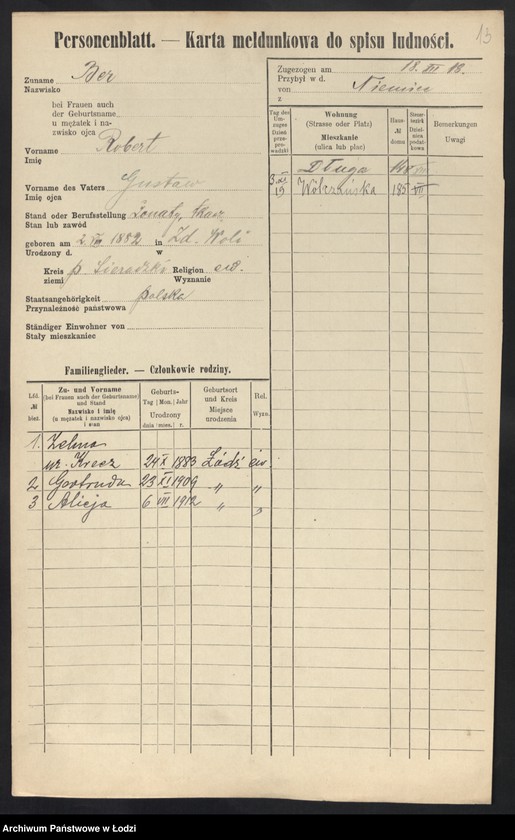 15
Personenblatt. — Karta meldunkowa do spisu ludności.
Zuname Ber
Nazwisko
bei Frauen auch
der Geburtsname
u mężatek i na-
zwisko ojca
Vorname Robert
Imię
Vorname des Vaters Gustaw
Imię ojca
Stand oder Berufsstellung żonaty, tkacz
Stan lub zawód
geboren am 2 VIII 1882 in Zd. Woli
Urodzony d. w
Kreis p. Sieradzki Religion ew.
ziemi Wyznanie
Staatsangehörigkeit polska
Przynależność państwowa
Ständiger Einwohner von
Stały mieszkaniec
Zugezogen am 18. XII 18.
Przybył w d.
von Niemiec
z
Tag des Um-zuges Dzień prze-prowadzki
Wohnung (Strasse oder Platz) Mieszkanie (ulica lub plac)
Haus- № domu
Steuer-bezirk Dzielnica podatkowa
Bemerkungen Uwagi
Długa
3 XI 19 Wólczańska 185 VII
Familienglieder. — Członkowie rodziny.
Lfd. № bież.
Zu- und Vorname (bei Frauen auch der Geburtsname) und Stand Nazwisko i imię (u mężatek i nazwisko ojca) i stan
Geburts- Tag | Mon. | Jahr Urodzony dnia | mies. | r.
Geburtsort und Kreis Miejsce urodzenia
Rel. Wyzn.
1. Zelma
ur. Krecz 24 X 1883 Łódź ew.
2 Gertruda 23 XI 1909 " "
3 Alicja 6 VII 1912 " "
Archiwum Państwowe w Łodzi